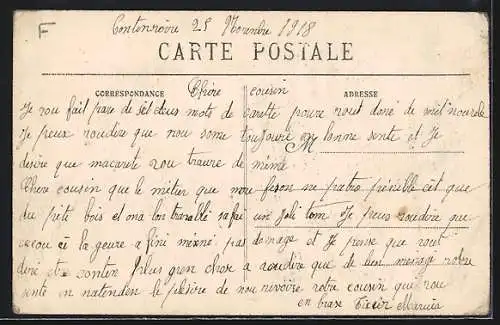 F
25 Novembre 1918
CARTE POSTALE
CORRESPONDANCE Chère cousin ADRESSE
Je vou fait pare de set deus mots de carette pour vout doné de
Je peux voudire que nou some toujours en bonne sente et Je
desire que macarete vou trouve de même
Chère cousin que le métier que nou feson ne patro pinible cèt que
du pète bois et on a bon travallé sa fai une Joli tom Je peus voudire que
la geure a fini même pas domage et Je pense que vout
doné etre conten plus gren chose a voudire que de bon mesage notre
sente en natenden le plésire de nou revoire votre cousin que vou
en brase Maruis